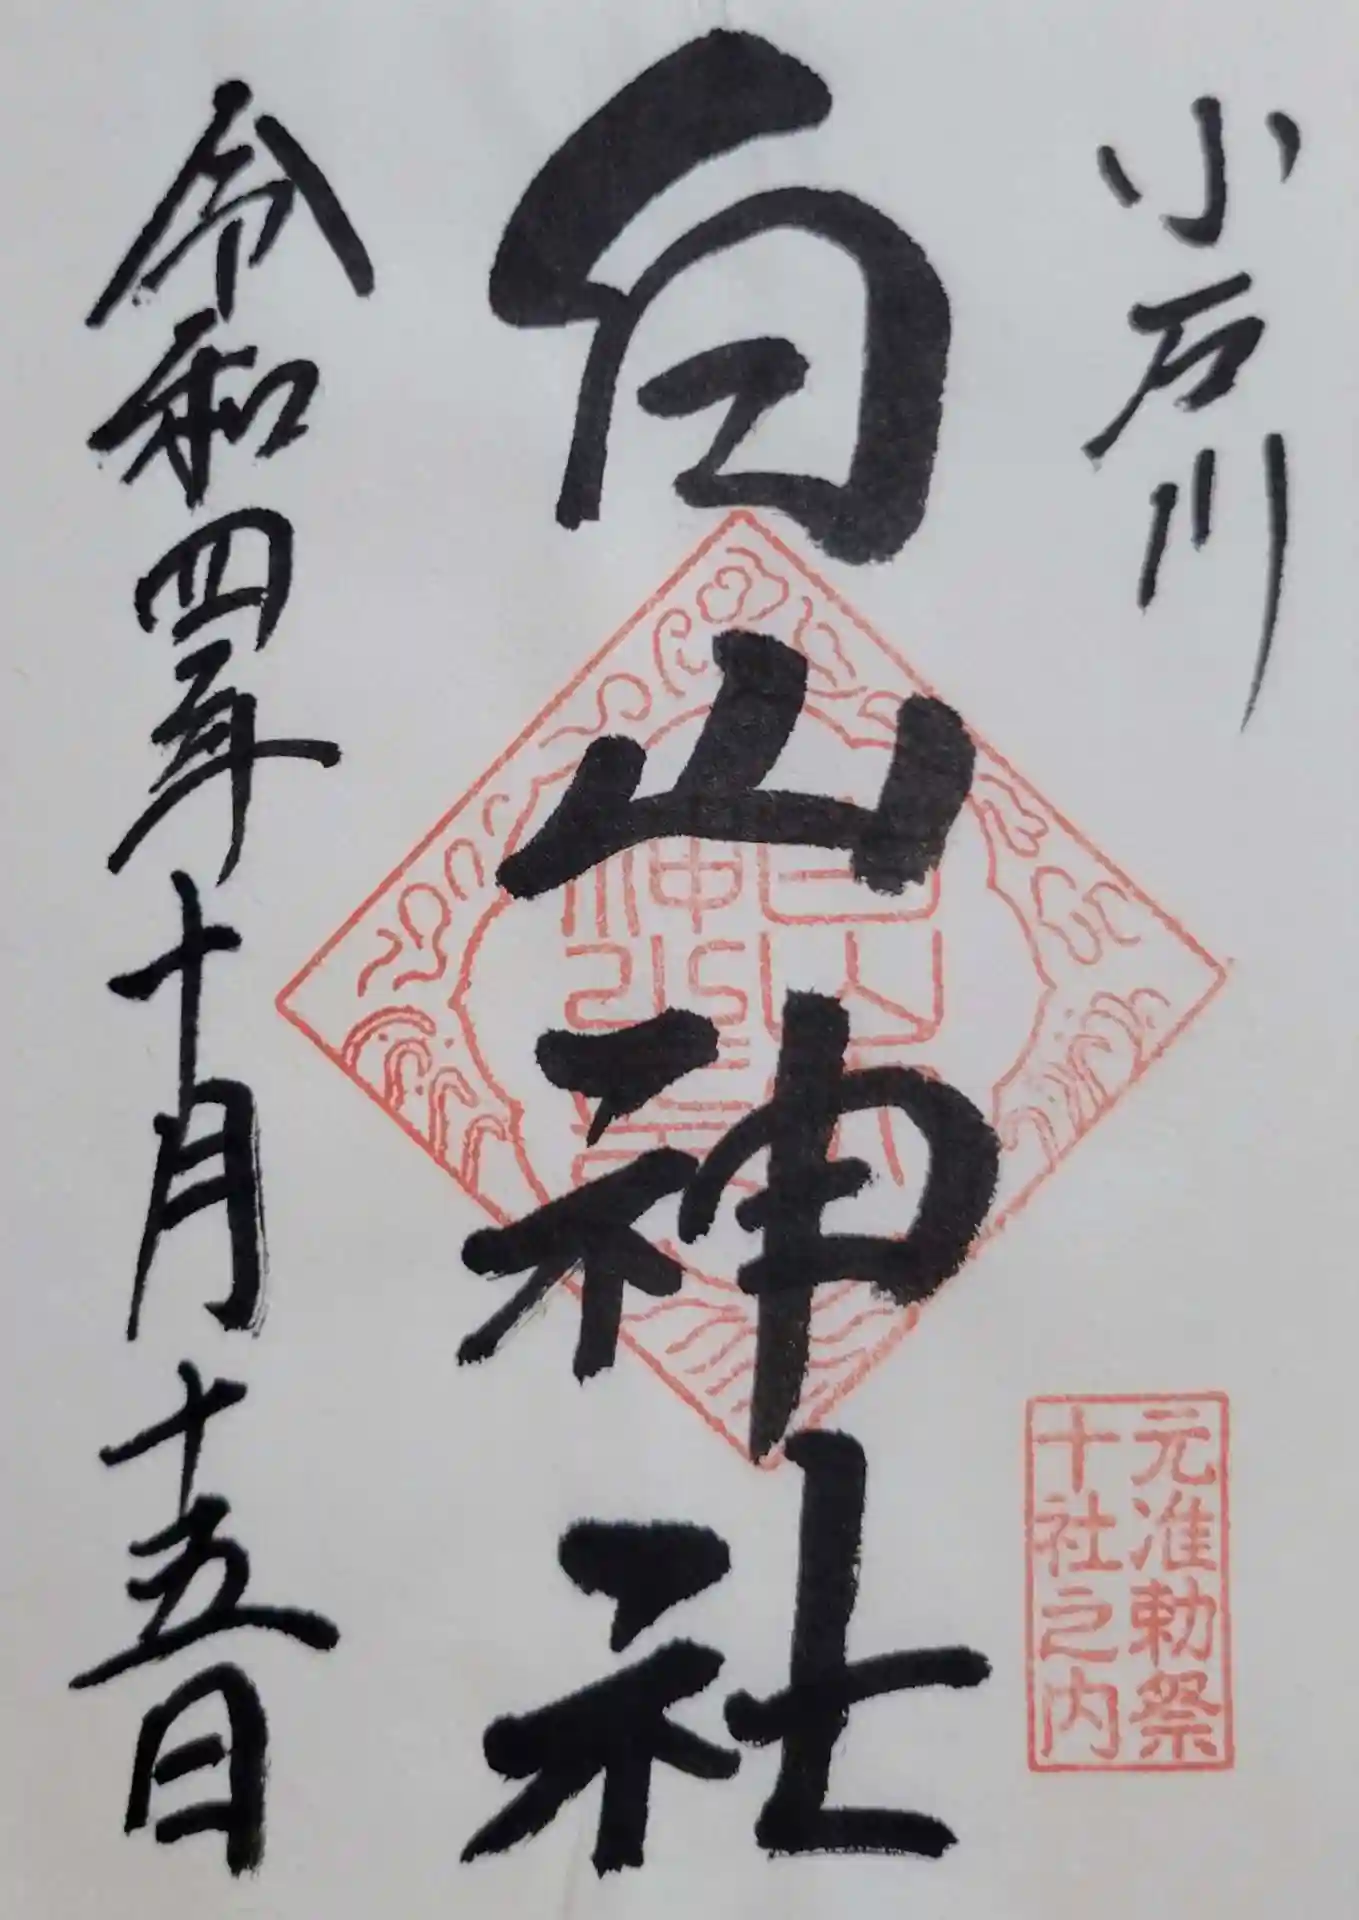 小石川
元准勅祭
十社之内
白山神社
令和四年十月十五日